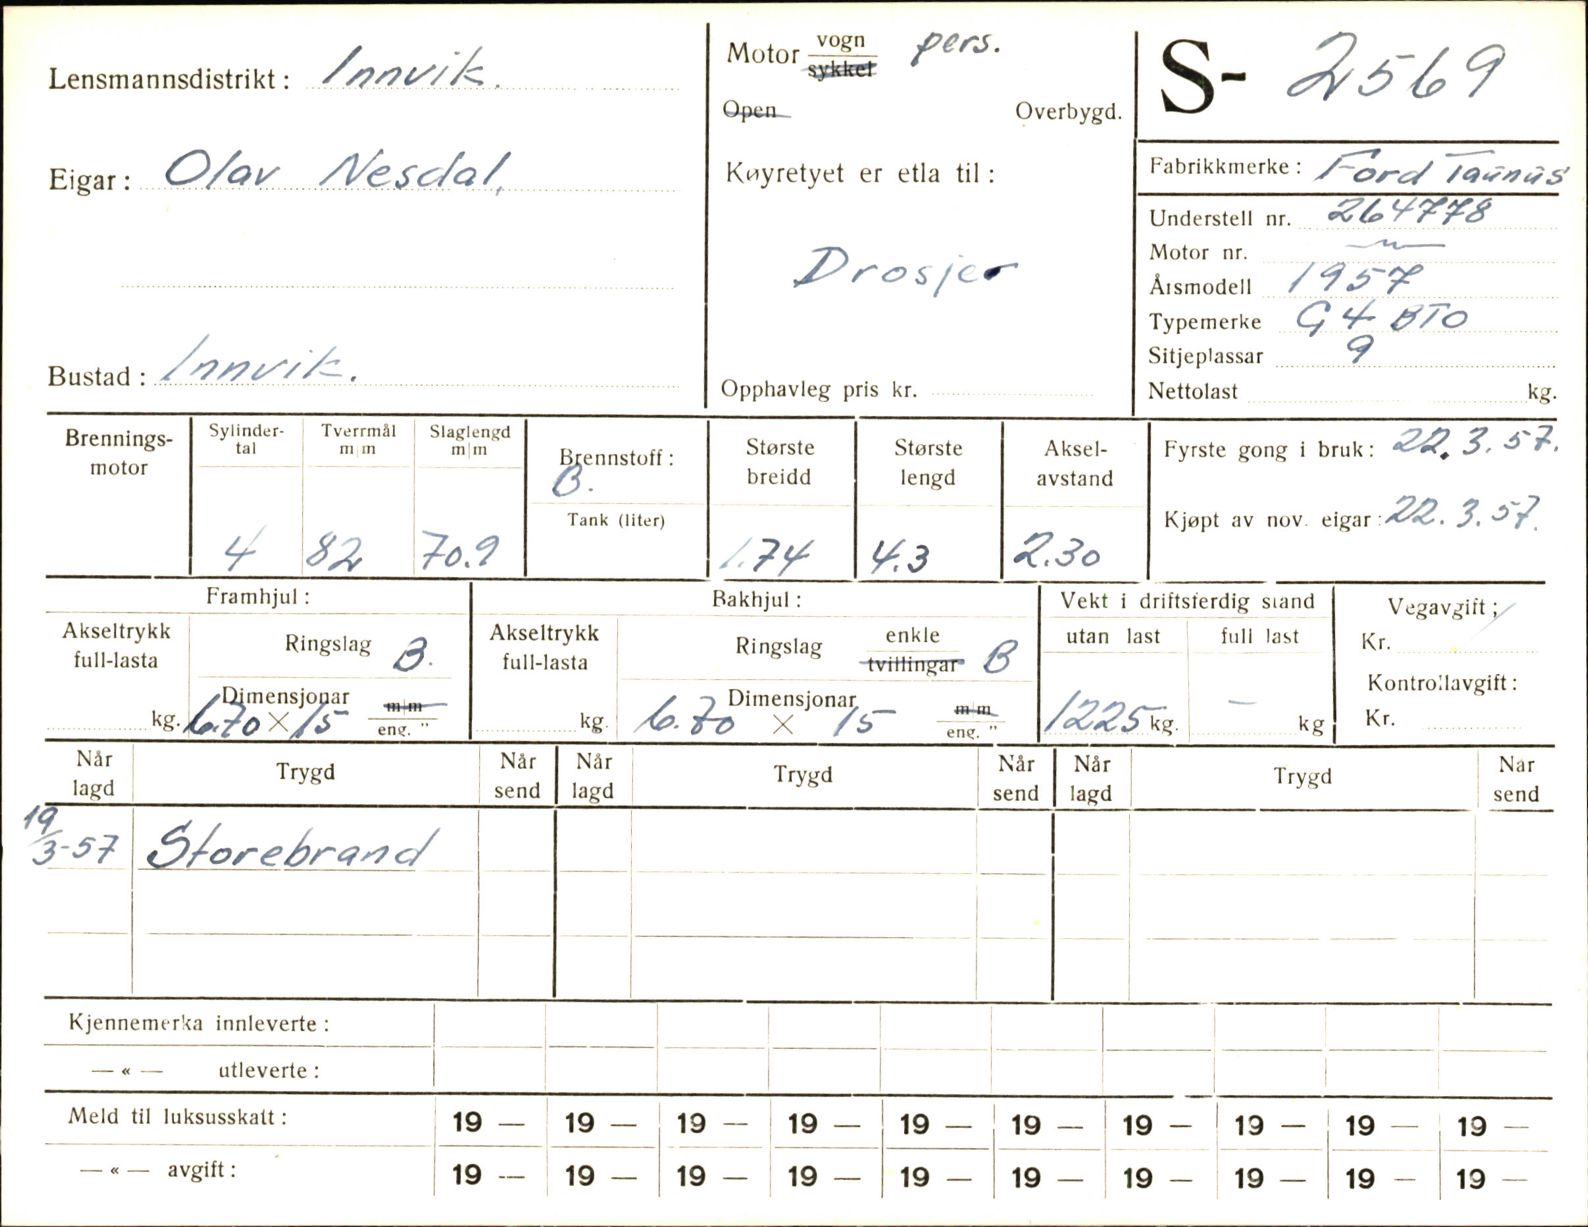 Lensmannsdistrikt: Innvik.
Eigar: Olav Nesdal,
Bustad: Innvik.
Motor vogn pers.
sykkel
Open Overbygd.
Køyretyet er etla til:
Drosjer
Opphavleg pris kr.
S- 2569
Fabrikkmerke: Ford Taunus
Understell nr. 264778
Motor nr. —"—
Årsmodell 1957
Typemerke G4 BTO
Sitjeplassar 9
Nettolast kg.
Brennings-
motor
Sylinder-
tal
4
Tverrmål
m|m
82
Slaglengd
m|m
70.9
Brennstoff:
B.
Tank (liter)
Største
breidd
1.74
Største
lengd
4.3
Aksel-
avstand
2.30
Fyrste gong i bruk: 22.3.57.
Kjøpt av nov. eigar: 22.3.57.
Framhjul:
Akseltrykk
full-lasta
kg.
Ringslag B.
Dimensjonar m|m
6.70 × 15 eng. "
Bakhjul:
Akseltrykk
full-lasta
kg.
Ringslag enkle B
tvillingar
Dimensjonar m|m
6.70 × 15 eng. "
Vekt i driftsferdig stand
utan last full last
1225 kg. — kg
Vegavgift;
Kr.
Kontrollavgift:
Kr.
Når
lagd
Trygd
Når
send
Når
lagd
Trygd
Når
send
Når
lagd
Trygd
Når
send
19/3-57 Storebrand
Kjennemerka innleverte:
— « — utleverte:
Meld til luksusskatt: 19 — 19 — 19 — 19 — 19 — 19 — 19 — 19 — 19 — 19 —
— « — avgift: 19 — 19 — 19 — 19 — 19 — 19 — 19 — 19 — 19 — 19 —